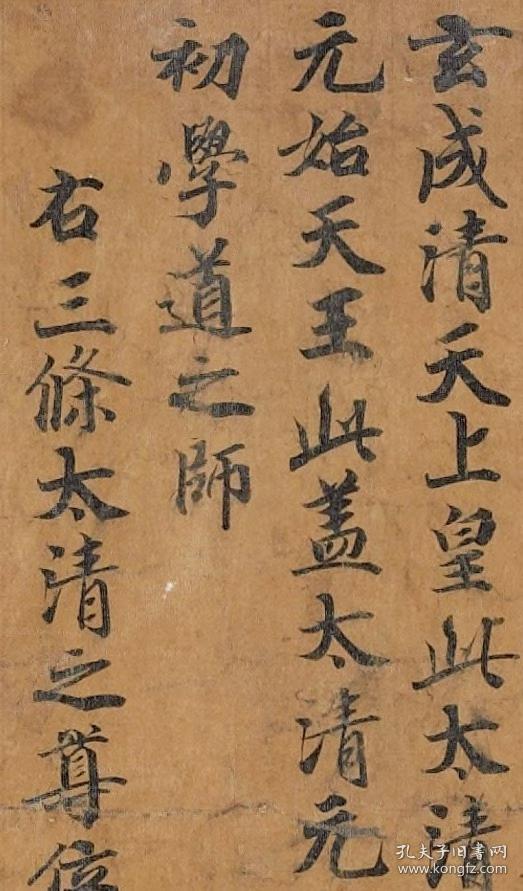 玄成清天上皇此太清
元始天王此盖太清元
初學道之師
右三條太清之尊位
孔夫子旧书网
www.kongfz.com